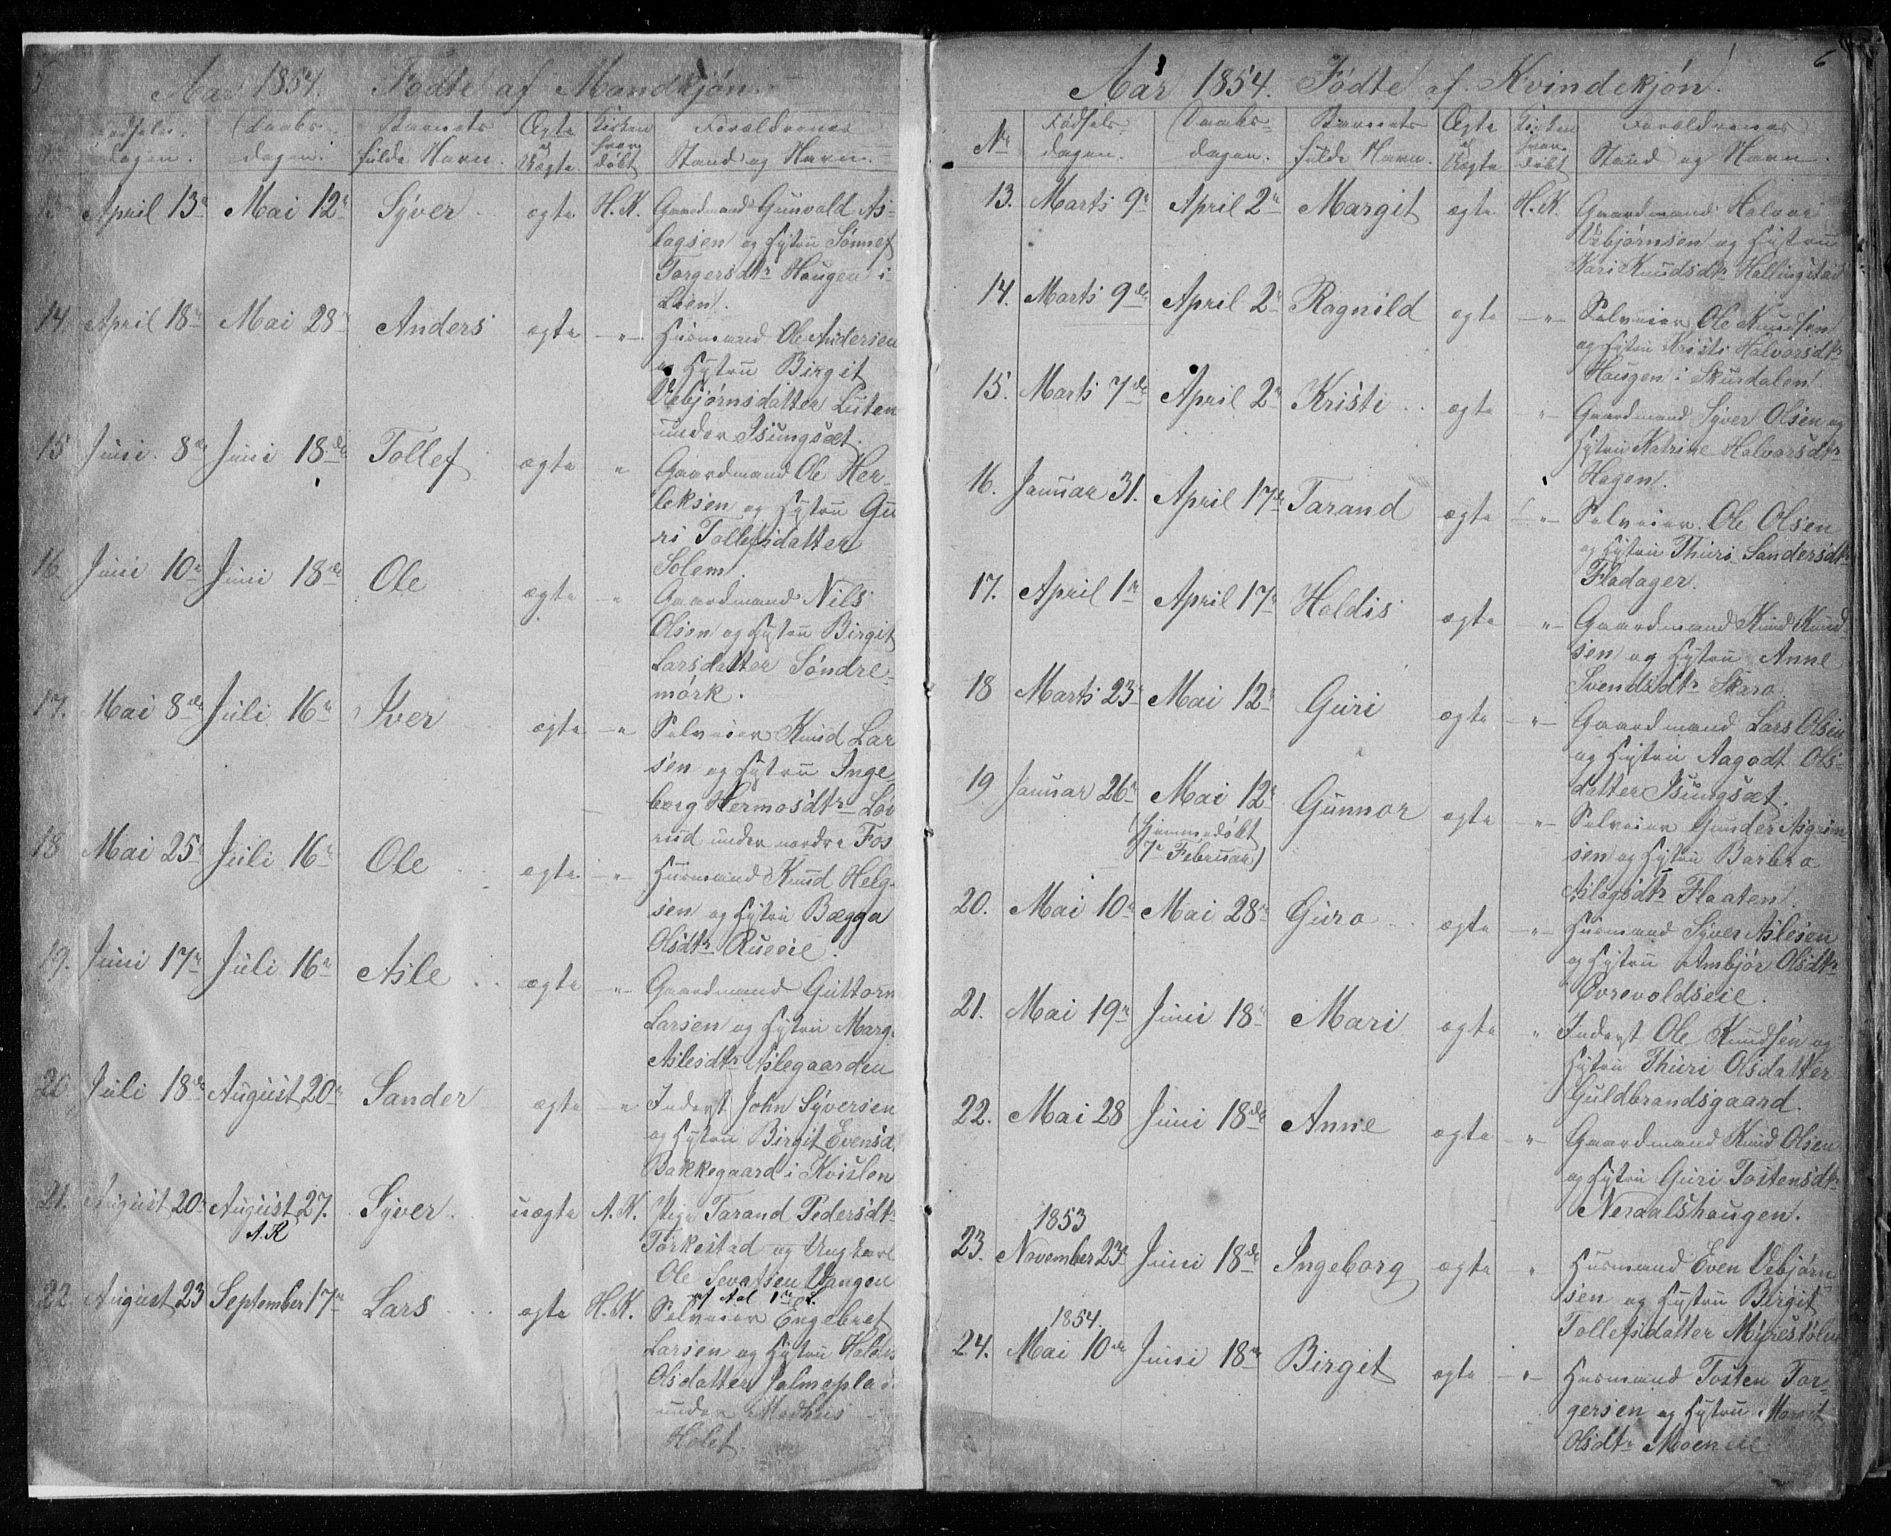 5
Aar 1854. Födte af Mandkjön.
Födsels- dagen. Daabs- dagen. Barnets fulde Navn. Ægte el Uægte. Kirken hvor döbt Forældrenes Stand og Navn.
13. April 13de Mai 12te Syver ægte H.K. Gaardmand Gunvald As-
lagsen og Hustru Sönnef
Torgersdtr Haugen i
Lien.
14. April 18de Mai 28de Anders ægte —„— Husmand Ole Andersen
og Hustru Birgit
Vebjörnsdatter Luten
under Isungsæt.
15 Juni 8de Juni 18de Tollef ægte „ Gaardmand Ole Her-
leksen og Hustru Gu
ri Tollefsdatter
Solem.
16 Juni 10de Juni 18de Ole ægte „ Gaardmand Nils
Olsen og Hustru Birgit
Larsdatter Söndre-
mörk.
17. Mai 8de Juli 16de Iver ægte —„ Selveier Knud Lar
sen og Hustru Inge-
borg Hermosdtr Löv
rud under nordre Fos
18 Mai 25de Juli 16de Ole ægte —„ Husmand Knud Helg
sen og Hustru Bægga
Olsdtr Rueeie.
19. Juni 17de Juli 16de Asle ægte —„— Gaardmand Guttorm
Larsen og Hustru Marg
Aslesdtr Aslegaarden
20 Juli 18de August 20de Sander ægte —„ Inderst John Syversen
og Hustru Birgit Evensd
Bakkegaard i Kvislen
21. August 20de August 27. A.K Syver uægte A.K. Pige Tarand Pedersdtr
Torkestad og Ungkarl
Ole Sevatsen Vangen
af Aal
22. August 23 September 17de Lars ægte H.K. Selveier Engebret
Larsen og Hustru Haldis
Olsdatter
under Medhus
Holet.
6
Aar 1854. Födte af Kvindekjön.
No Födsels- dagen. Daabs- dagen. Barnets fulde Navn. Ægte el Uægte Kirken hvor döbt Forældrenes Stand og Navn.
13. Marts 9de April 2de Margit ægte H.K. Gaardmand Halvor
Vebjörnsen og Hustru
Kari Knudsdtr Hallingstad
14. Marts 9de April 2de Ragnild ægte —„— Selveier Ole Knudsen
og Hustru Kristi Halvorsdtr
Haugen i Skurdalen.
15. Marts 7de April 2de Kristi ægte „ Gaardmand Syver Olsen og
Hustru Katrine Halvorsdtr
Hagen.
16. Januar 31. April 17de Tarand ægte —„— Selveier Ole Olsen
og Hustru Thuri Sandersdtr
Fladager.
17. April 1ste April 17de Haldis ægte —„— Gaardmand Knud Knud
sen og Hustru Anne
Svendsdtr Skaro
18 Marts 23de Mai 12te Guri ægte —„— Gaardmand Lars Olsen
og Hustru Aagodt Ols-
datter Isungsæt.
19 Januar 26de Mai 12te (Hjemmedöbt 7de Februar) Gunnor ægte —„— Selveier Gunder Asgrim
sen og Hustru Barbra
Aslagsdtr Flaaten.
20. Mai 10de Mai 28de Guro ægte —„— Husmand Syver Aslesen
og Hustru Ambjör Olsdtr
Övrevoldseie.
21. Mai 19de Juni 18de Mari ægte „ Inderst Ole Knudsen og
Hustru Thuri Olsdatter
Guldbrandsgaard.
22. Mai 28 Juni 18de Anne ægte —„— Gaardmand Knud Olsen
og Hustru Guri Tostensdtr
Neraalshaugen.
1853
23. November 23de Juni 18de Ingeborg ægte „ Husmand Even Vebjörn
sen og Hustru Birgit
Tollefsdatter Myrestölen
1854.
24. Mai 10de Juni 18de Birgit ægte —„— Husmand Tosten Tor-
gersen og Hustru Margit
Olsdtr Moeneie